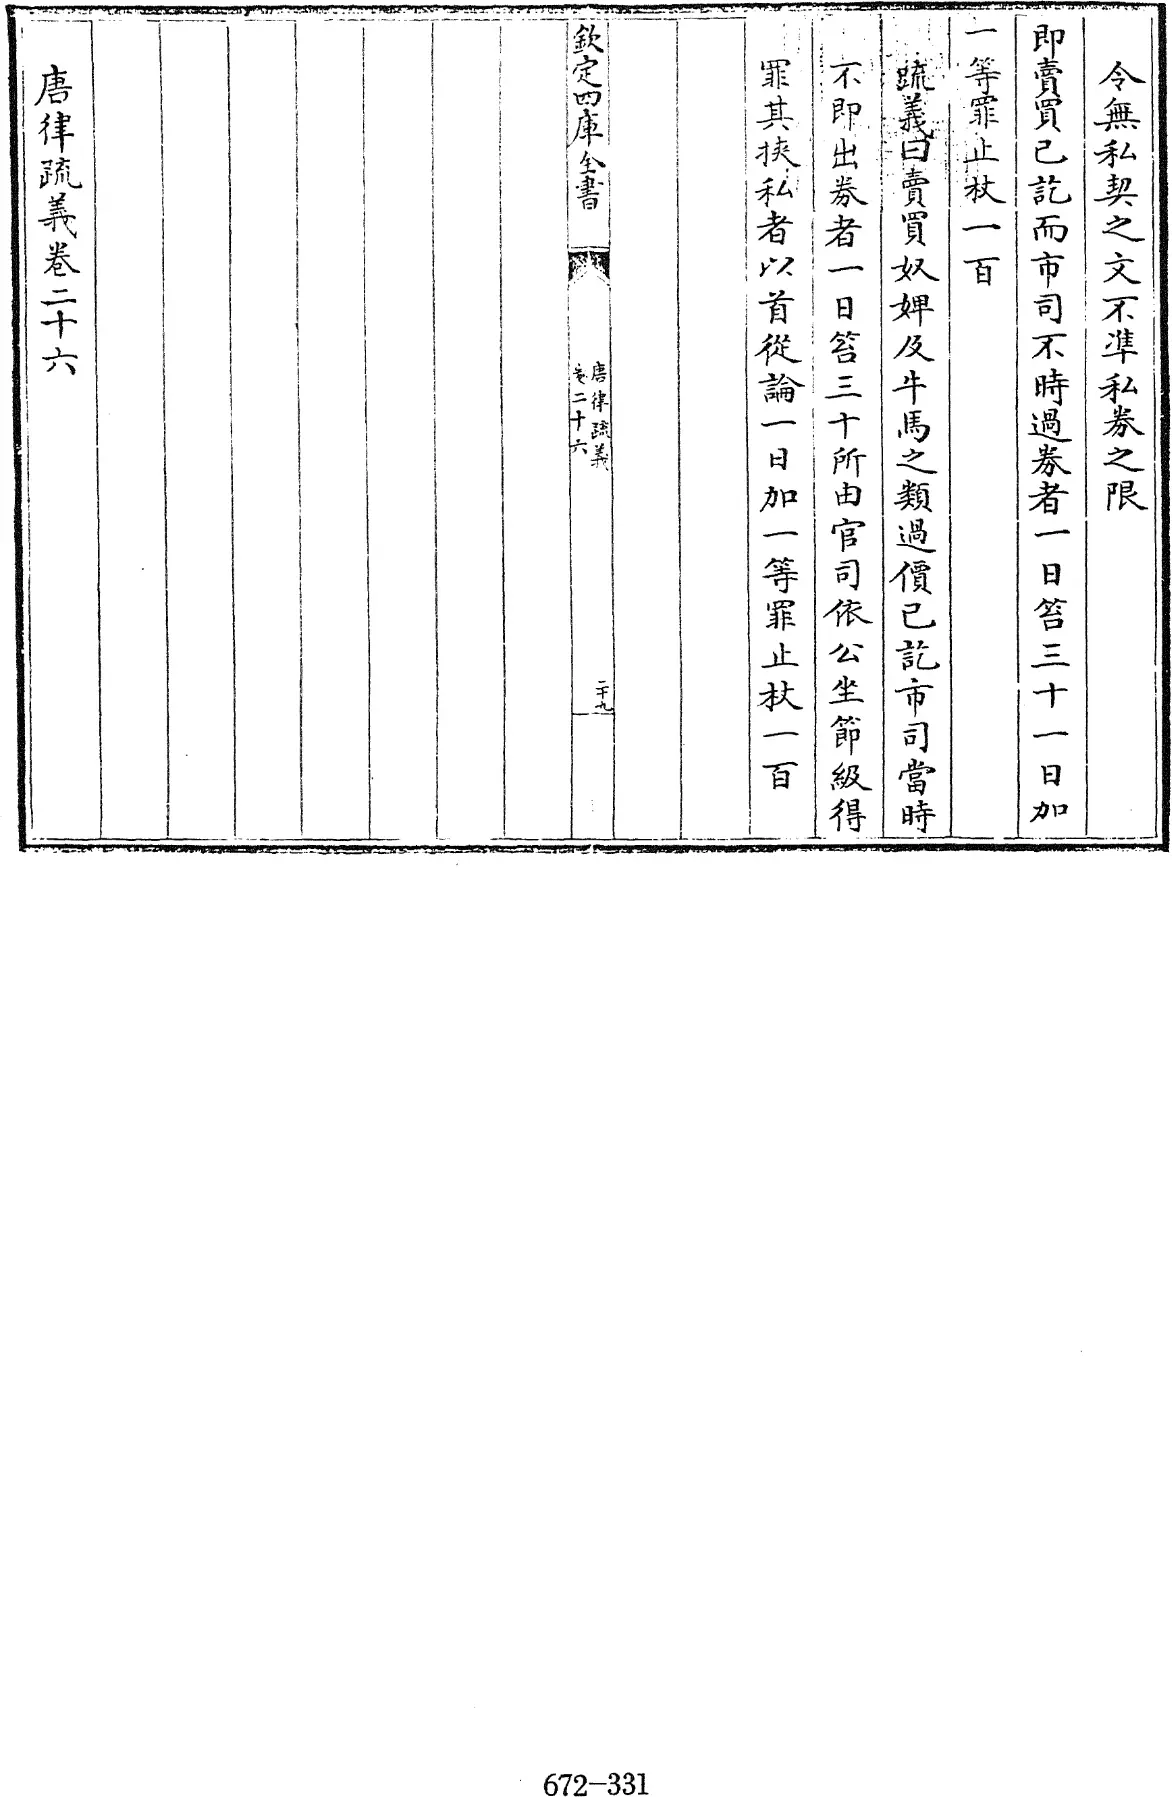 令無私契之文不準私券之限
即賣買已訖而市司不時過券者一日笞三十一日加
一等罪止杖一百
疏義曰賣買奴婢及牛馬之類過價已訖市司當時
不即出券者一日笞三十所由官司依公坐節級得
罪其挾私者以首從論一日加一等罪止杖一百
欽定四庫全書
唐律疏義
卷二十六
二十九
唐律疏義卷二十六
672-331